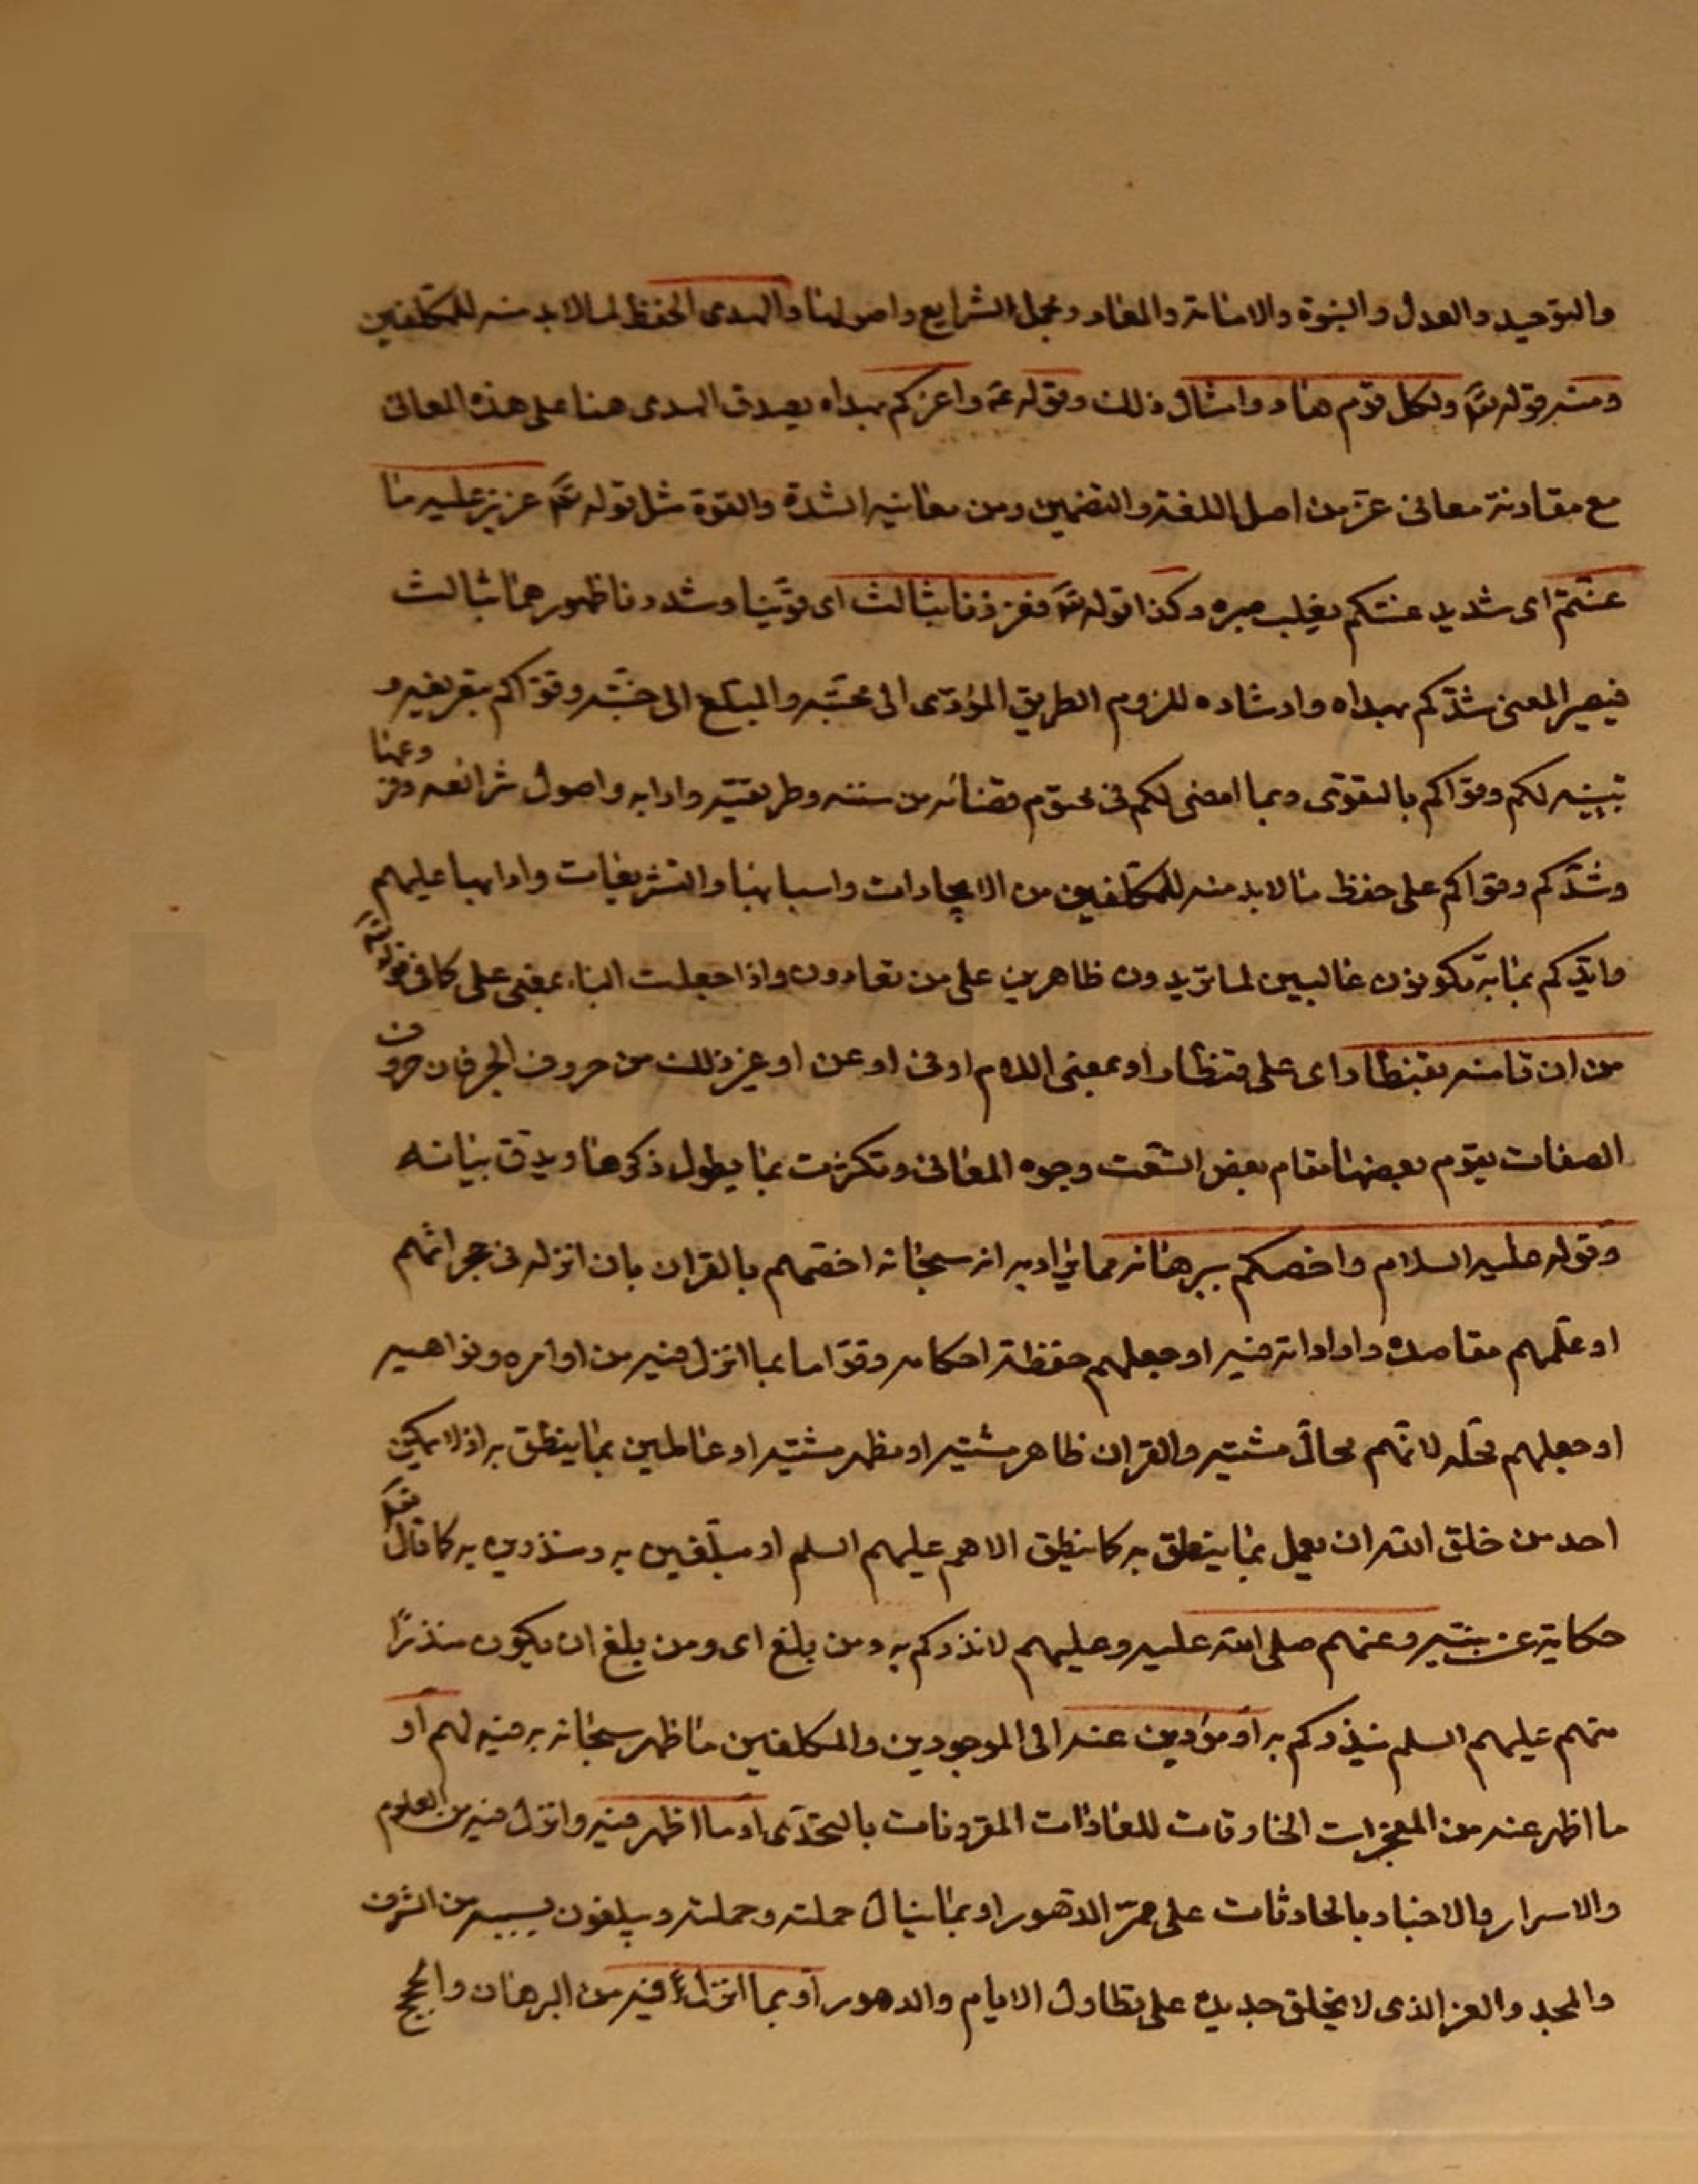 والتوحيد والعدل والنبوة والامامة والمعاد ومجمل الشرايع واصولها والهدى الحفظ لما لا بد منه للمكلفين
ومنه قوله تعالى ولكل قوم هاد وامثال ذلك وقوله ع واعزكم بهداه يصدق الهدى هنا على هذه المعانى
مع مقارنة معانى عز من اصل اللغة والتضمين ومن معانيه الشدة والقوة مثل قوله تع عزيز عليه ما
عنتم اى شديد عنتكم يغلب صبره وكذا قوله تع فعززنا بثالث اى قوّينا وشددنا ظهورهما بثالث
فيصير المعنى شدّكم بهداه وارشاده للزوم الطريق المؤدّى الى محبّته والمبلغ الى جنّته وقوّاكم بتعريفه و
تبيينه لكم وقوّاكم بالتقوى وبما امضى لكم فى محتوم قضائه من سننه وطريقته وادابه واصول شرائعه وفر وعها
وشدّكم وقوّاكم على حفظ ما لا بد منه للمكلفين من الايجادات واسبابها والتشريعات وادابها عليهم
وايّدكم بما به تكونون غالبين لما تريدون ظاهرين على من تعادون واذا جعلت الباء بمعنى على كما فى قوله تع
من ان تامنه بقنطار اى على قنطار او بمعنى اللام او فى او عن او غير ذلك من حروف الجر فان حروف
الصفات يقوم بعضها مقام بعض اتسعت وجوه المعانى وتكثرت بما يطول ذكرها ويدق بيانه
وقوله عليه السلام واخصكم ببرهانه مما يراد به انه سبحانه اختصهم بالقران بان انزله فى حجراتهم
او علّمهم مقاصده واراداته فيه او جعلهم حفظة احكامه وقوّاما بما انزل فيه من اوامره ونواهيه
او جعلهم محلّه لانّهم محالّ مشيّته والقران ظاهر مشيّته او مظهر مشيّته او عاملين بما ينطق به اذ لا يمكن
احد من خلق الله ان يعمل بما ينطق به كما ينطق الا هم عليهم السلم او مبلّغين به ومنذرين به كما قال تع
حكاية عن نبيّه وعنهم صلى الله عليه وعليهم لانذركم به ومن بلغ اى ومن بلغ ان يكون منذرًا
منهم عليهم السلم ينذركم به او مؤدين عنه الى الموجودين والمكلفين ما ظهر سبحانه به فيه لهم او
ما اظهر عنه من المعجزات الخارقات للعادات المقرونات بالتحدّى او ما اظهر فيه وانزل فيه من العلوم
والاسرار والاخبار بالحادثات على ممرّ الدهور او بما ينال حملته وحملته ويبلغون بسببه من الشرف
والمجد والعز الذى لا يخلق جديده على تطاول الايام والدهور او بما انزل فيه من البرهان والحجج